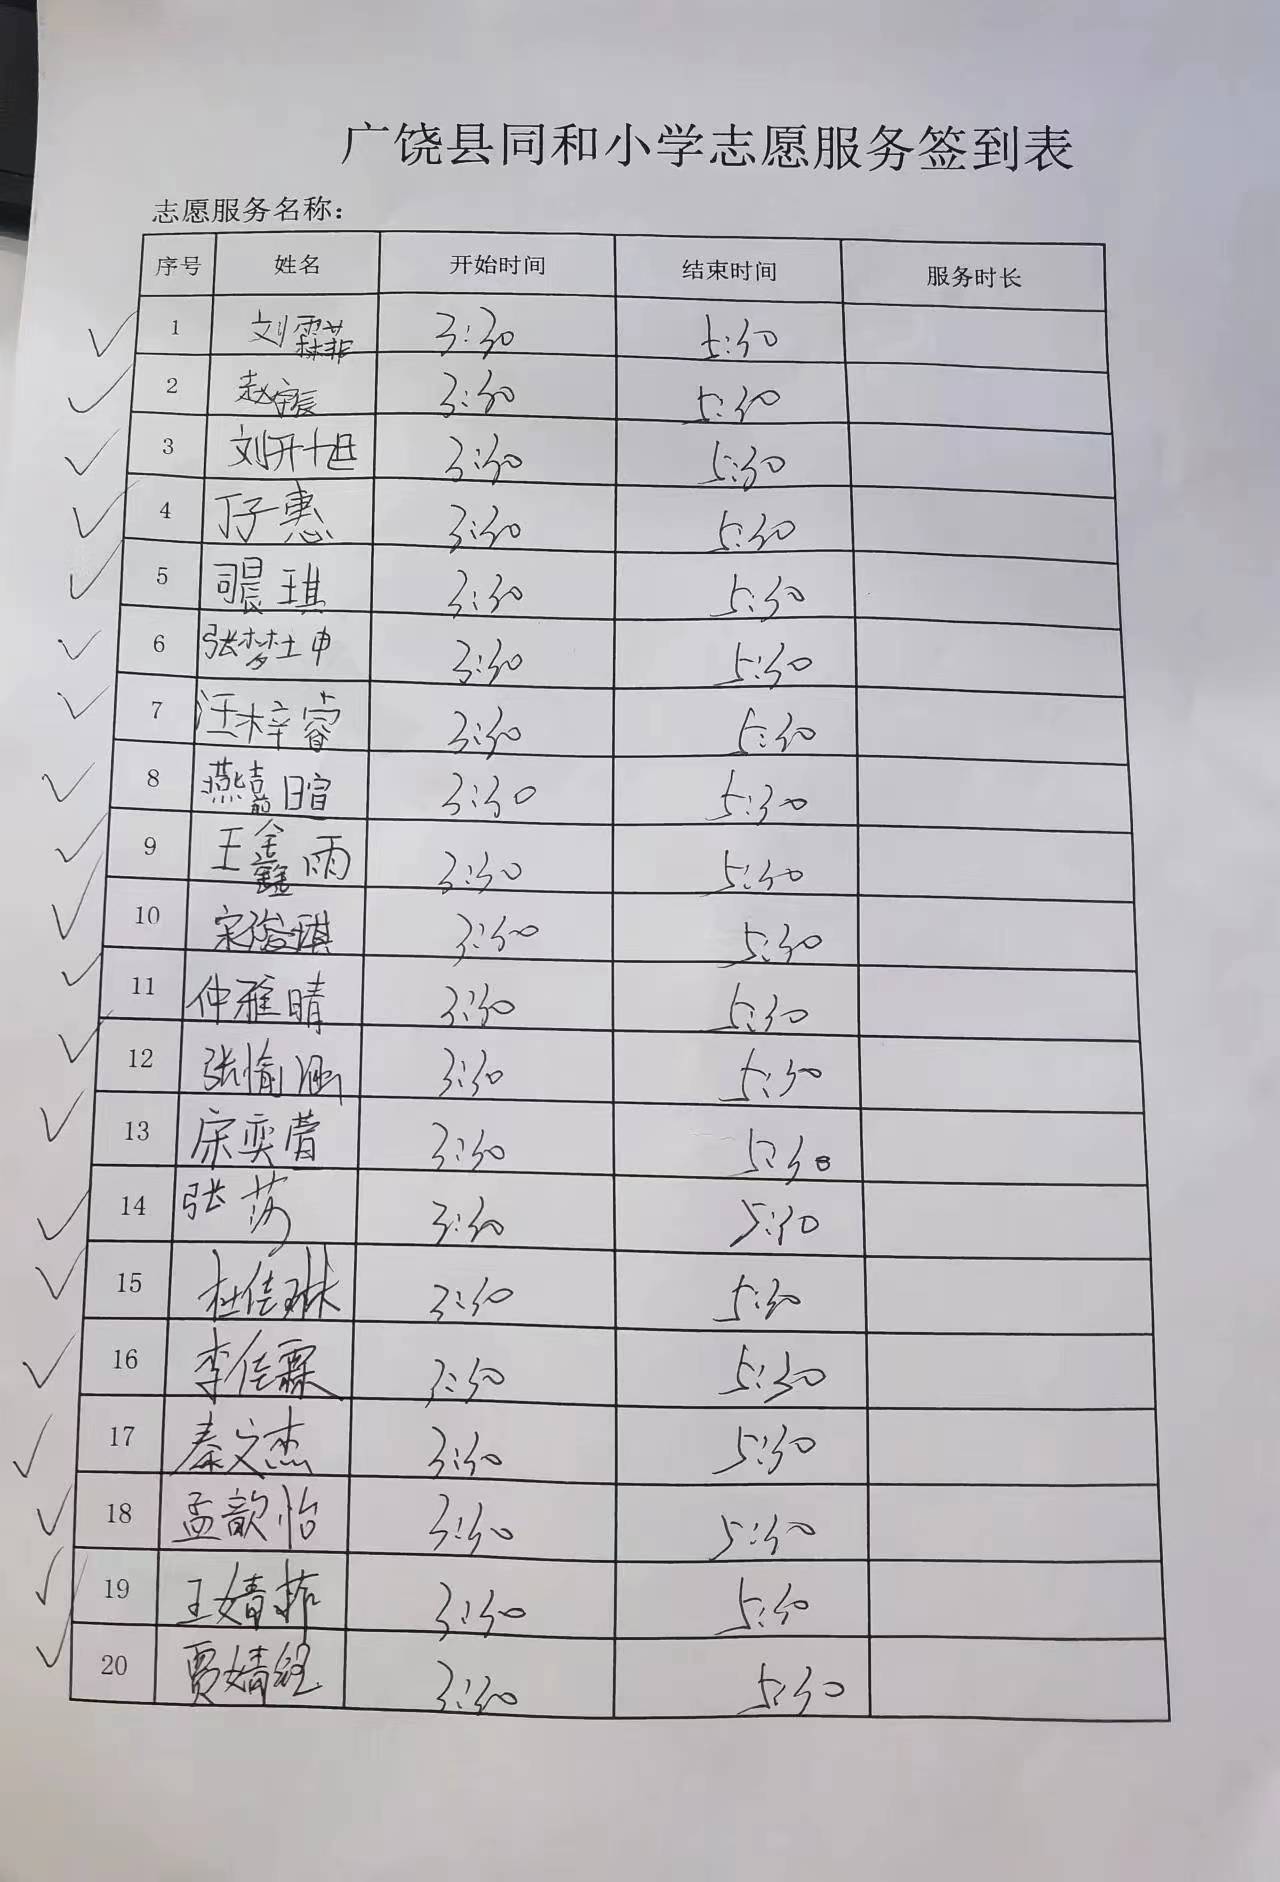 广饶县同和小学志愿服务签到表
志愿服务名称：
序号 姓名 开始时间 结束时间 服务时长
1 刘霖菲 3:30 5:30
2 赵宇辰 3:30 5:30
3 刘开旭 3:30 5:30
4 丁子惠 3:30 5:30
5 司晨琪 3:30 5:30
6 张梦坤 3:30 5:30
7 汪梓睿 3:30 5:30
8 燕 暄 3:30 5:30
9 王鑫雨 3:30 5:30
10 宋俊琪 3:30 5:30
11 仲雅晴 3:30 5:30
12 张愉涵 3:30 5:30
13 宋奕蕾 3:30 5:30
14 张 3:30 5:30
15 杜佳琳 3:30 5:30
16 李佳霖 3:30 5:30
17 秦文杰 3:30 5:30
18 孟歆怡 3:30 5:30
19 王婧菇 3:30 5:30
20 贾婧 3:30 5:30